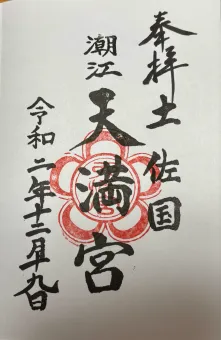 奉拝 土佐国
潮江
天満宮
令和二年十二月九日